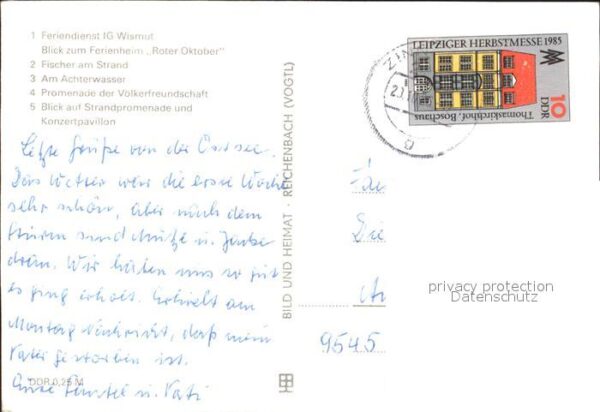 1 Feriendienst IG Wismut
Blick zum Ferienheim „Roter Oktober"
2 Fischer am Strand
3 Am Achterwasser
4 Promenade der Völkerfreundschaft
5 Blick auf Strandpromenade und
Konzertpavillon
Letzte Grüße von der Ostsee.
Das Wetter war die erste Woche
sehr schön, aber nach dem
Sturm sind Mütze u. Jacke
dran. Wir haben uns so gut
es ging erholt. Erhielt am
Montag Nachricht, daß mein
Vater gestorben ist.
Eure u. Vati
DDR 0,25 M
BILD UND HEIMAT · REICHENBACH (VOGTL)
LEIPZIGER HERBSTMESSE 1985
10
DDR
Thomaskirchhof, Bosehaus
ZIN
Fa
Die
9545
privacy protection
Datenschutz